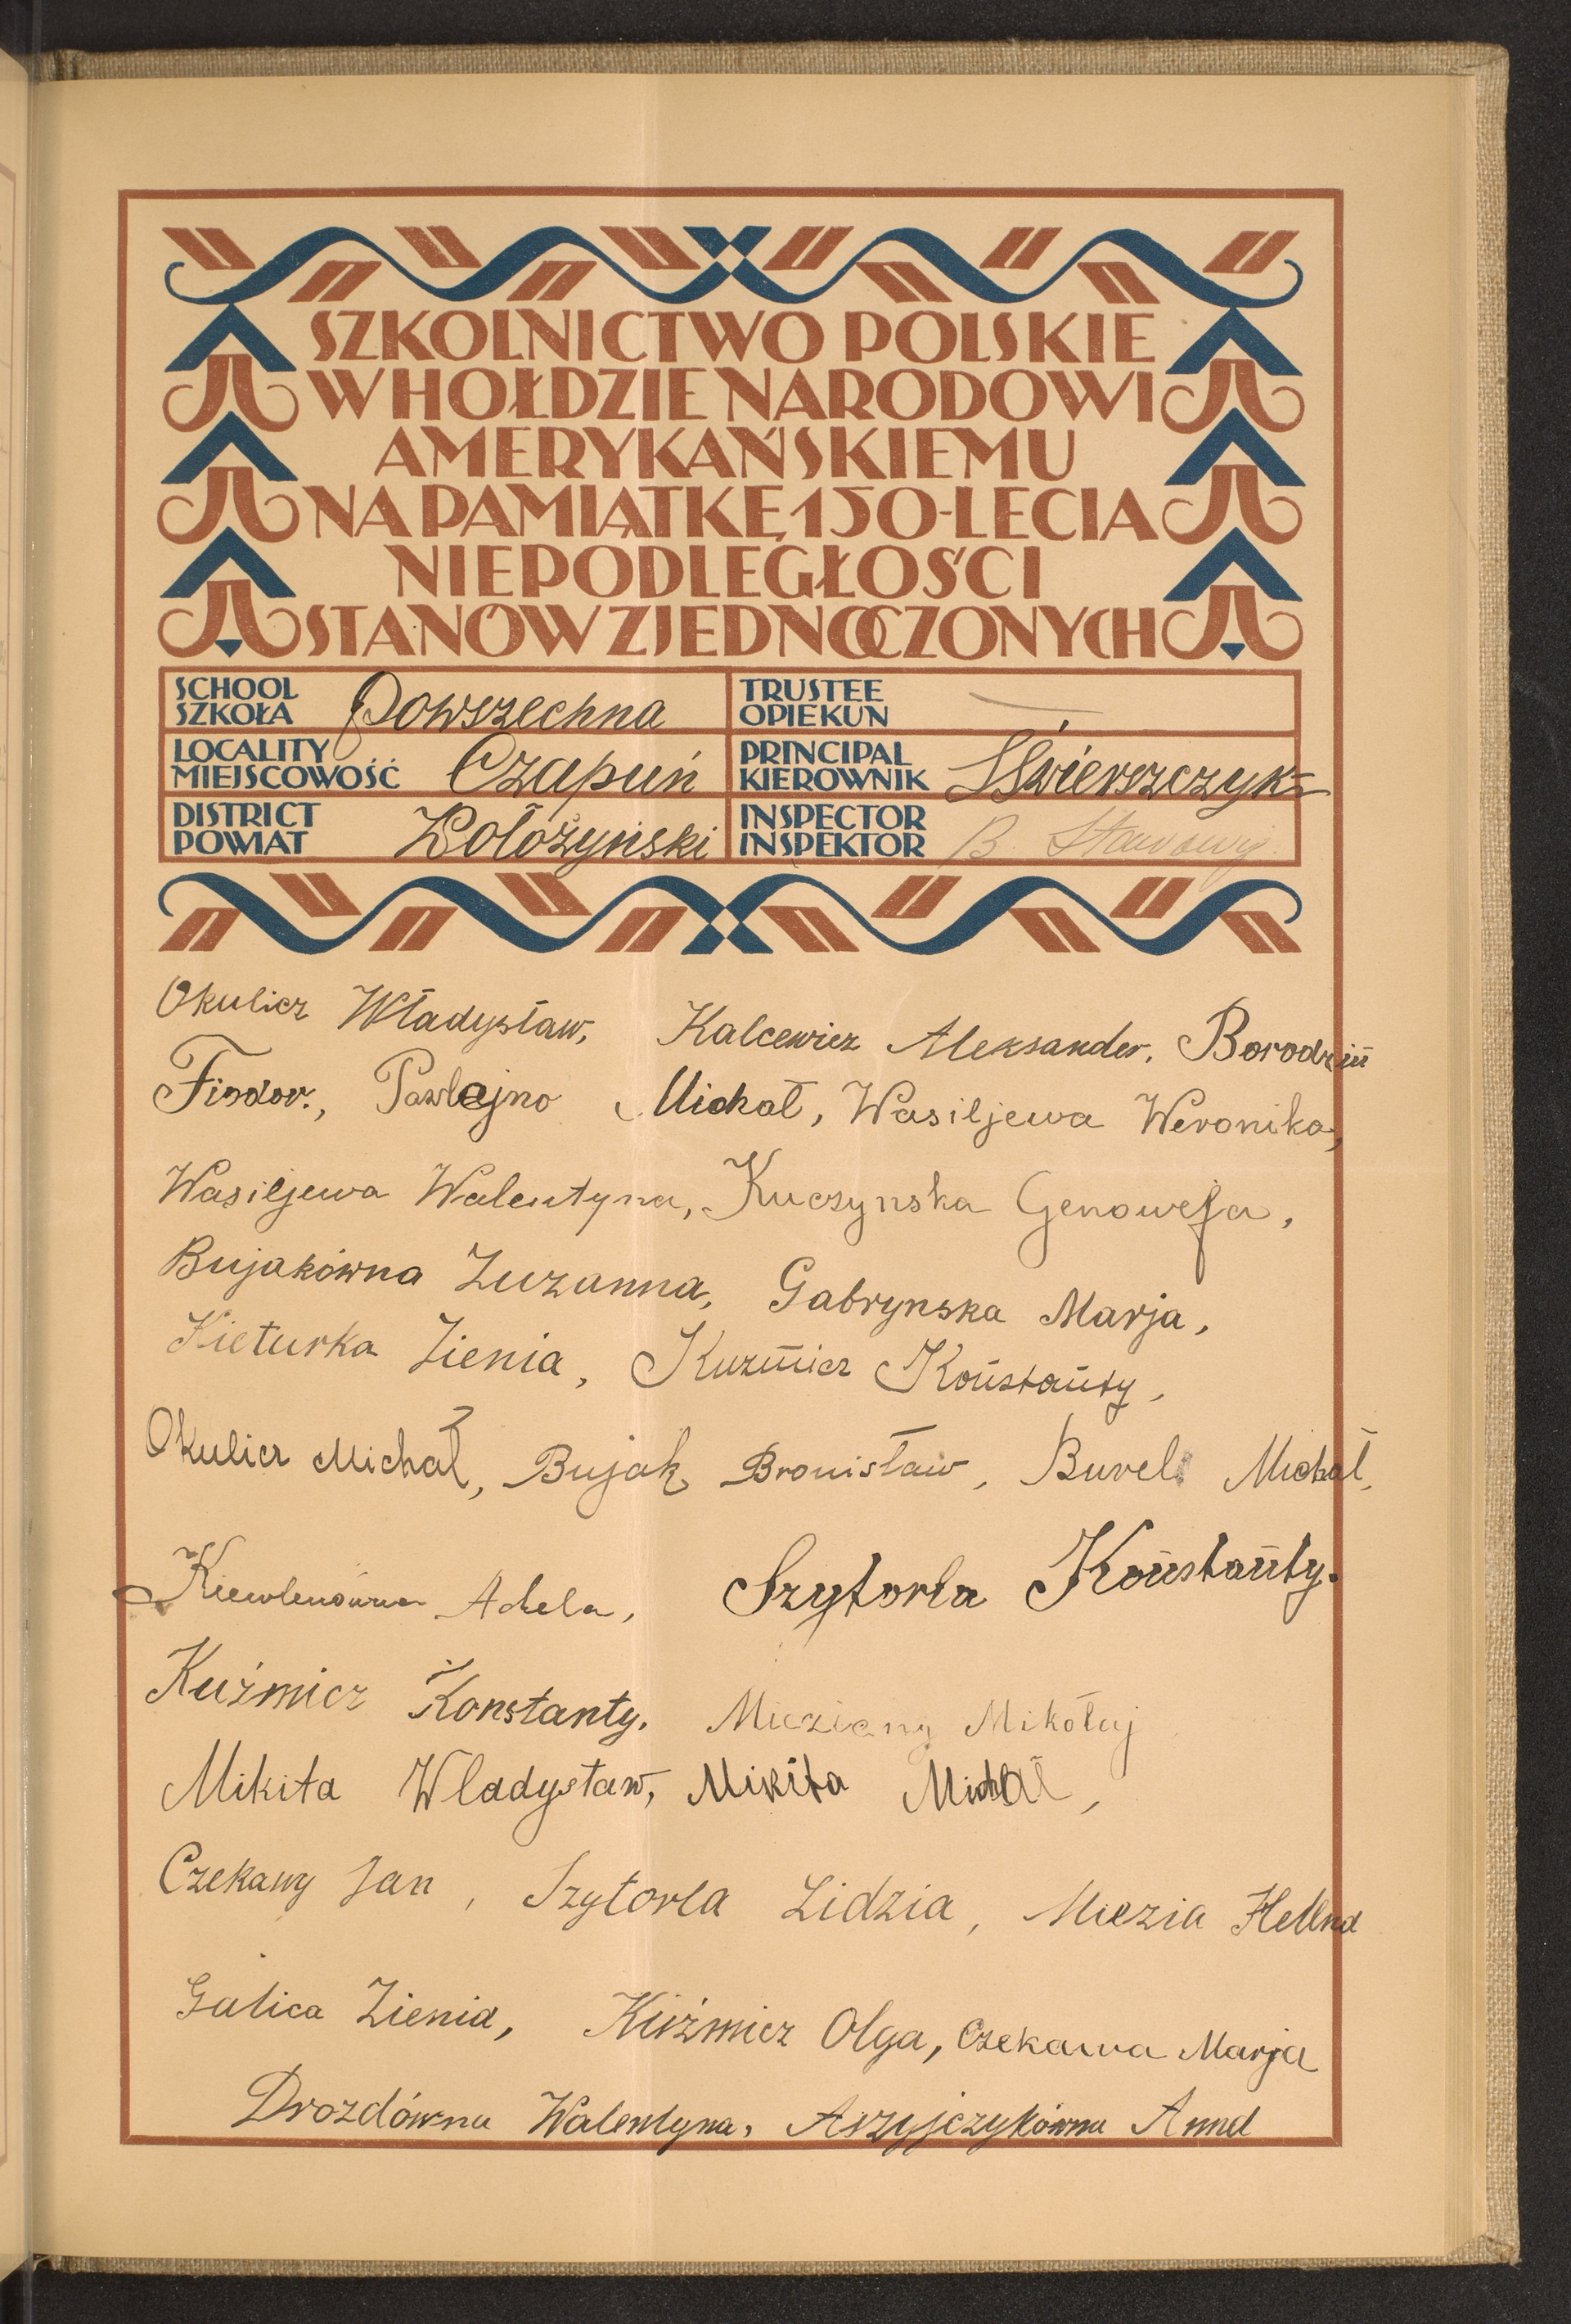 SZKOLNICTWO POLSKIE
W HOŁDZIE NARODOWI
AMERYKAŃSKIEMU
NA PAMIĄTKĘ 150-LECIA
NIEPODLEGŁOŚCI
STANÓW ZJEDNOCZONYCH
SCHOOL
SZKOŁA Powszechna
TRUSTEE
OPIEKUN
LOCALITY
MIEJSCOWOŚĆ Czapuń
PRINCIPAL
KIEROWNIK Świerszczyk
DISTRICT
POWIAT Wołożyński
INSPECTOR
INSPEKTOR B. Stawowy
Okulicz Władysław, Kalcewicz Aleksander, Borodziń
Fiodor., Pawlejno Michał, Wasiljewa Weronika,
Wasiljewa Walentyna, Kuczynska Genowefa,
Bujakówna Zuzanna, Gabrynska Marja,
Kieturka Zienia, Kuzmicz Konstanty,
Okulicz Michał, Bujak Bronisław, Burel Michał,
Kiewlenówna Adela, Szytorla Konstanty.
Kuźmicz Konstanty. Mikołaj
Mikita Władysław, Mikita Michał,
Czekany Jan, Szytorla Lidzia, Miezia Hellna
Galica Zienia, Kuźmicz Olga, Czekawa Marja
Drozdówna Walentyna, Aszyjczykówna Anna